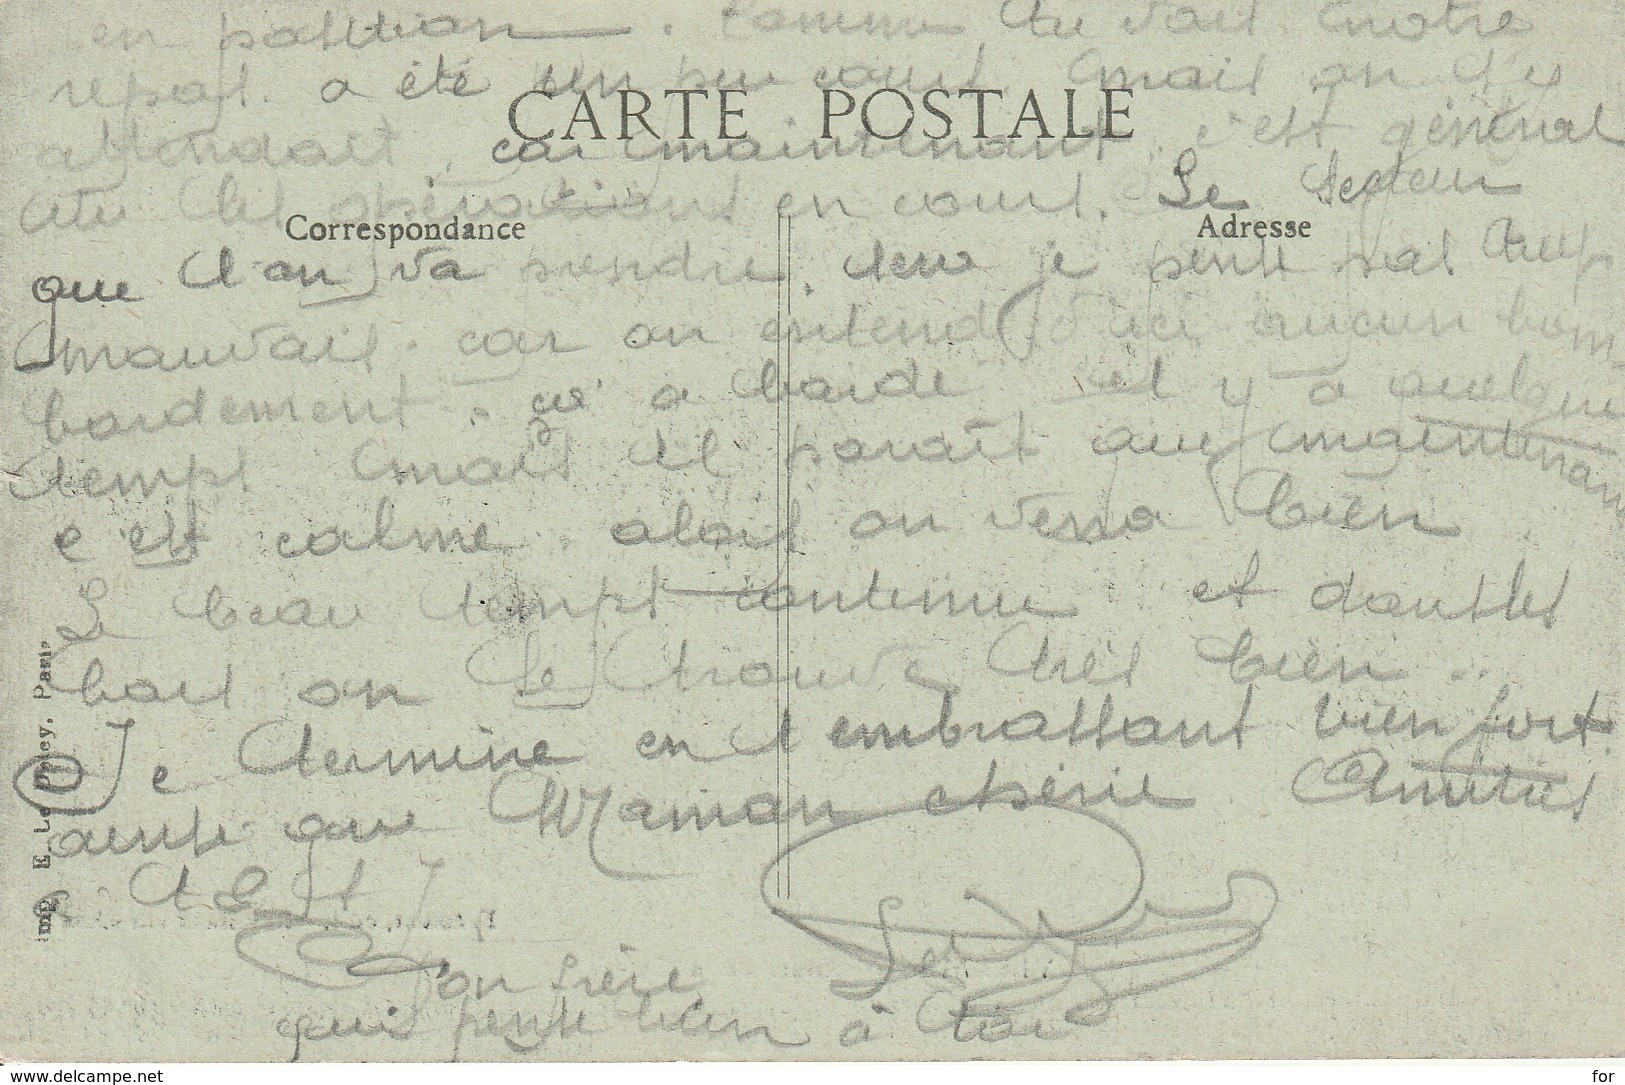 en position. Comme tu vois notre
repas a été un peu court mais on s'y
CARTE POSTALE
attendait, car maintenant c'est général
vu les opérations en cours. Le secteur
Correspondance
Adresse
que l'on va prendre, sera je pense pas trop
mauvais. car on entend d'ici aucun bom
bardement. ça a bardé il y a quelque
temps mais il paraît que maintenant
c'est calme. alors on verra bien
Le beau temps continue et dans les
bois on se trouve très bien..
Je termine en t'embrassant bien fort.
ainsi que Maman chérie. Amitiés
à
Ton frère
qui pense bien à toi
Imp. E. Le Deley, Paris
www.delcampe.net
for